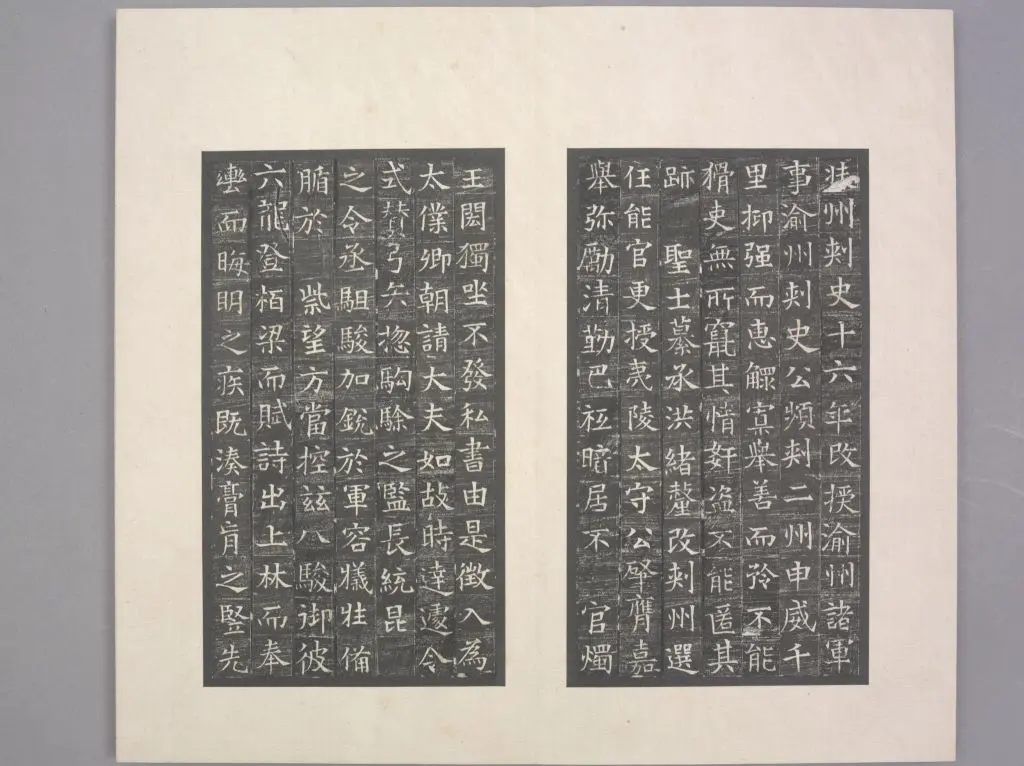 州刺史十六年改授渝州諸軍
事渝州刺史公頻刺二州申威千
里抑强而惠鰥寡舉善而矜不能
猾吏無所竄其情姧盗不能匿其
跡 聖上纂承洪緒釐改刺州選
任能官更授夷陵太守公肈膺嘉
舉弥勵清勤巴祇暗居不 官燭
王閎獨坐不發私書由是徵入為
太僕卿朝請大夫如故時達遽令
式賛弓矢揔駒騟之監長統昆
之令丞駔駿加銳於軍容犠牲俻
腯於 祡望方當控兹八駿御彼
六龍登栢梁而賦詩出上林而奉
轡而晦明之疾既湊膏肓之竪先